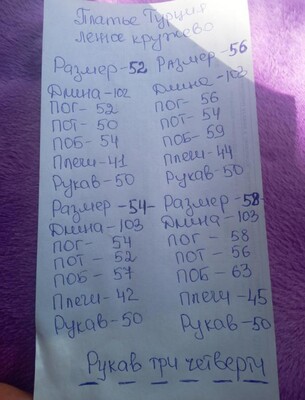 Платье Турция
легкое кружево
Размер-52
Длина-102
ПОГ-52
ПОТ-50
ПОБ-54
Плеч-41
Рукав-50
Размер-54-
Длина-103
ПОГ-54
ПОТ-52
ПОБ-57
Плеч-42
Рукав-50
Размер-56
Длина-102
ПОГ-56
ПОТ-54
ПОБ-59
Плеч-44
Рукав-50
Размер-58-
Длина-103
ПОГ-58
ПОТ-56
ПОБ-63
Плеч-45
Рукав-50
Рукав три четверти